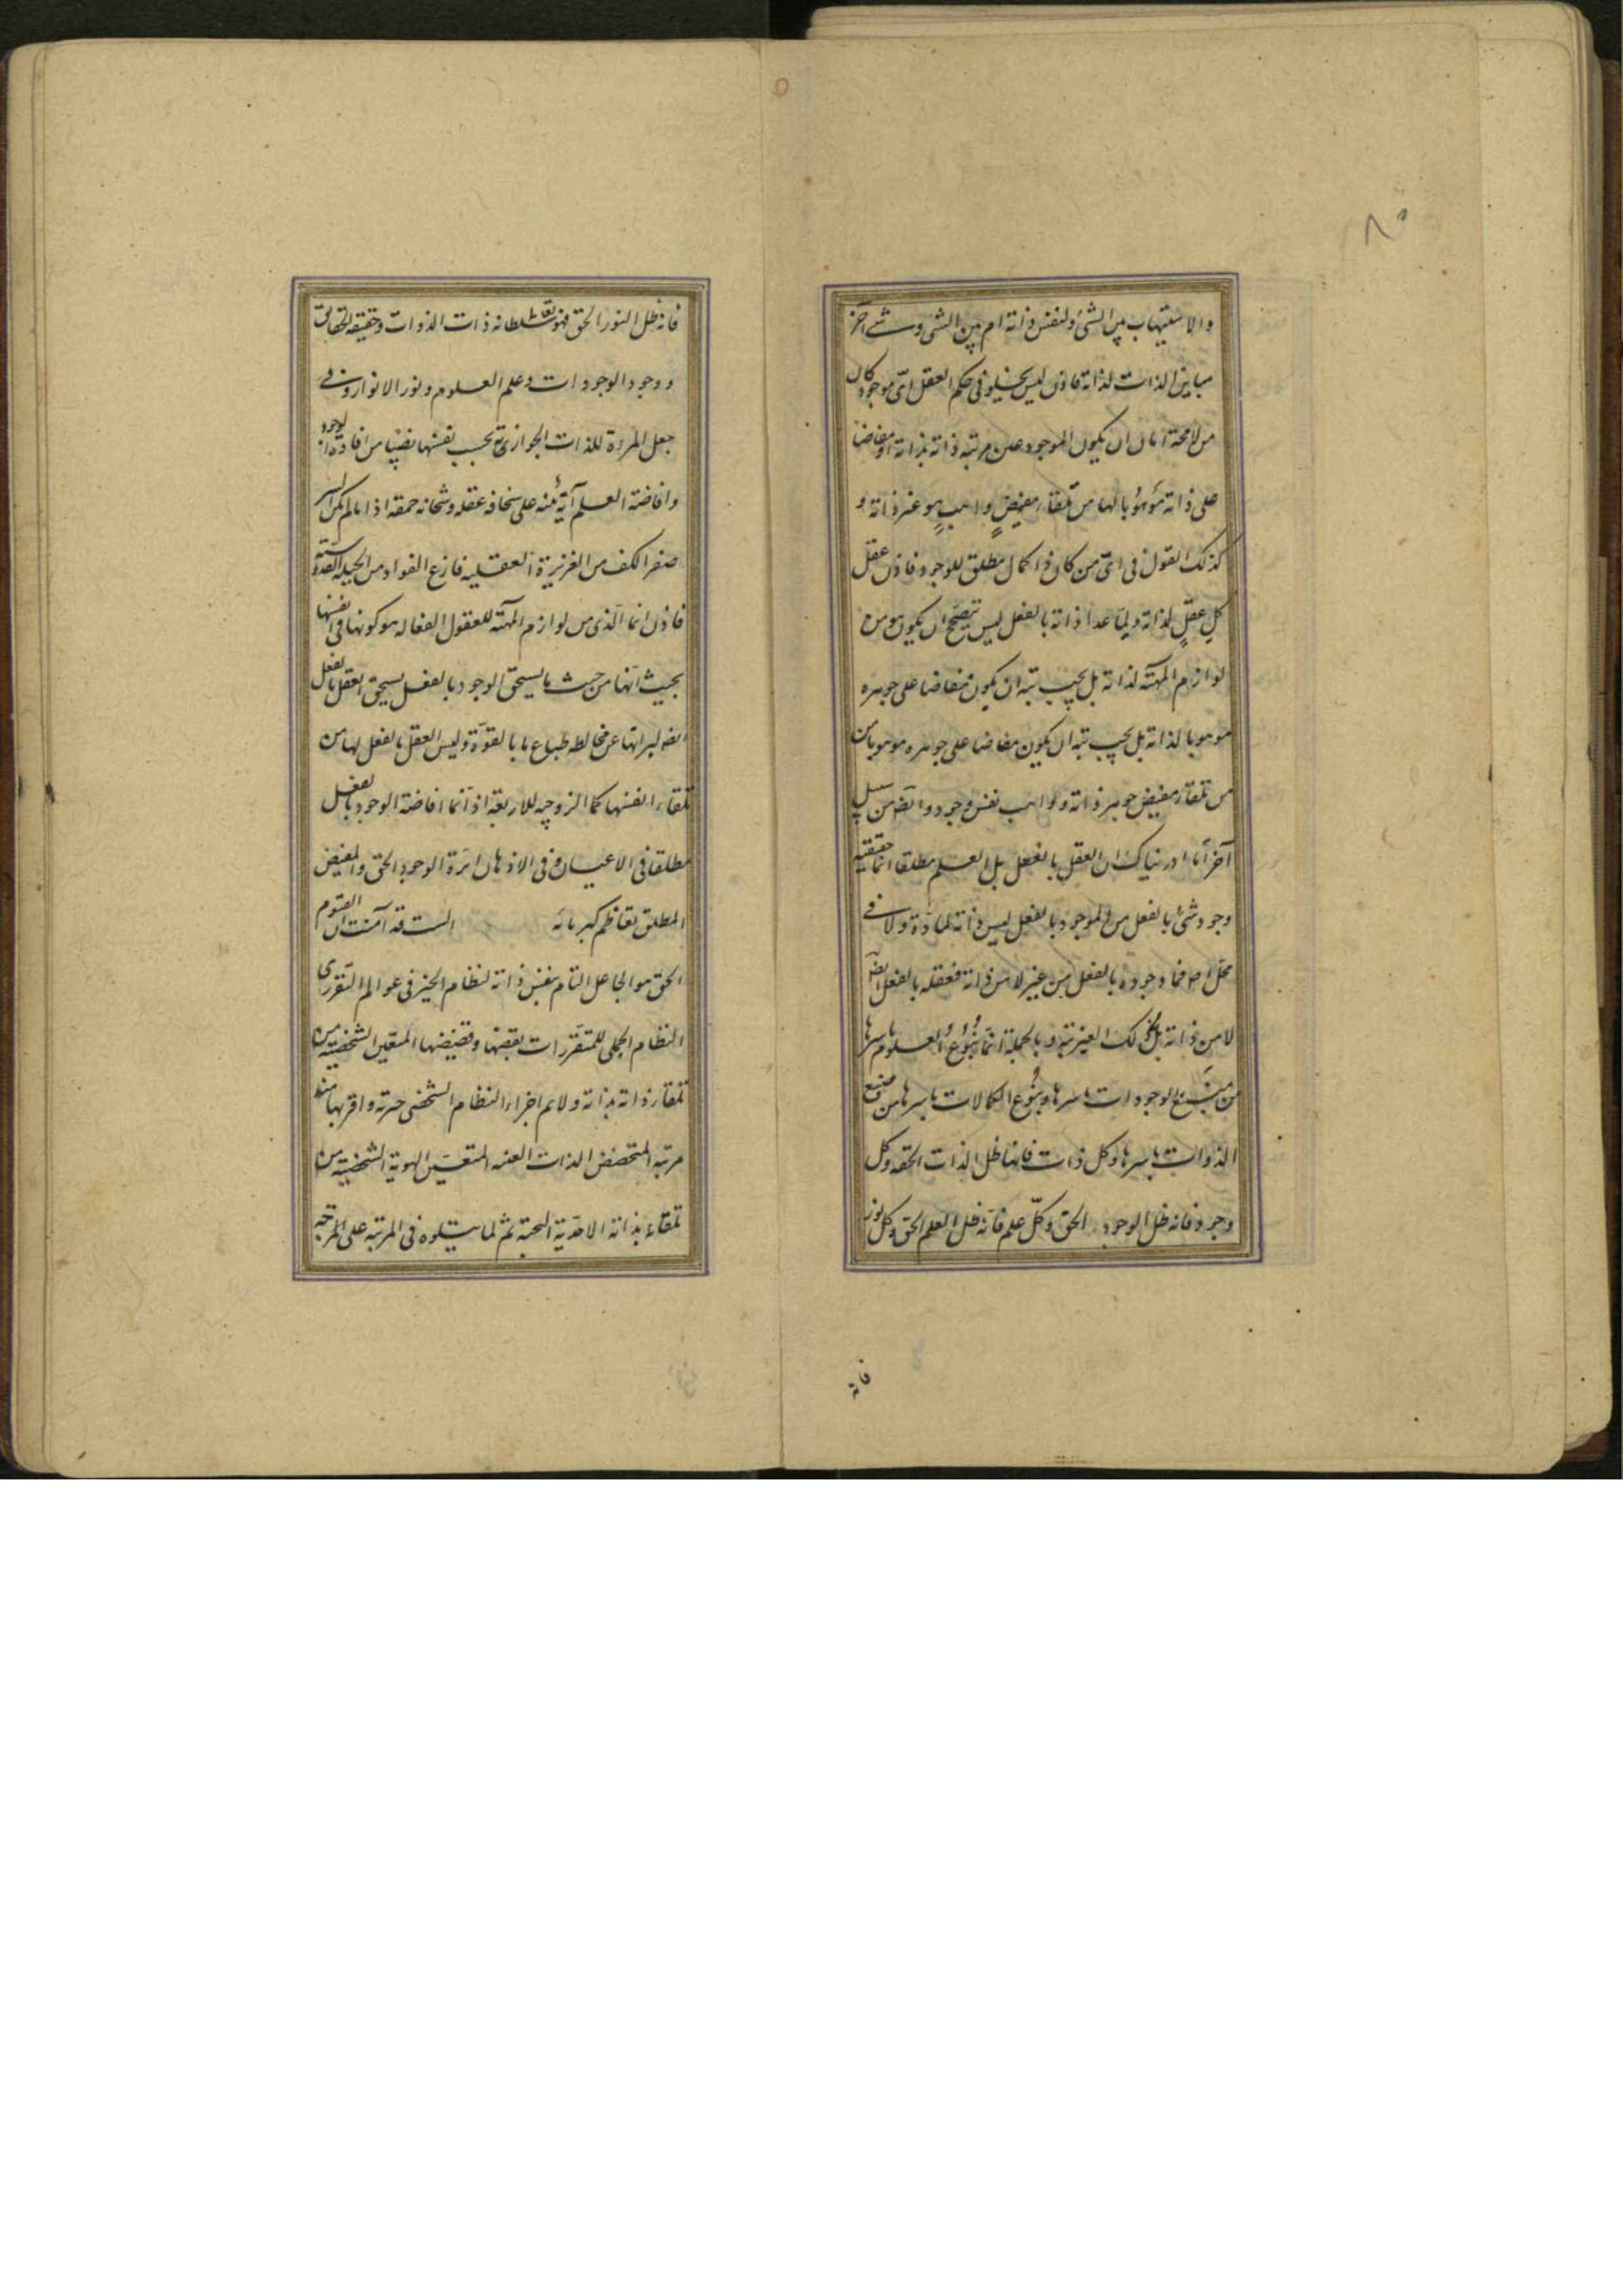 ٨٥
والاستيهاب بين الشئ ولنفس ذاته ام بين الشئ وشئ آخر
مباين الذات لذاته فاذن ليس يخلو فى حكم العقل اىّ موجود كان
من ان يكون الموجود عين مرتبة ذاته بذاته او مفاضا
على ذاته موهوبا لها من تلقاء مفيضٍ واهبٍ هو غير ذاته و
كذلك القول فى اىّ من كان ذا كمال مطلق للوجود فاذن عقل
كل عقلٍ لذاته ولما عدا ذاته بالفعل ليس يصحّ ان يكون هو من
لوازم المهيّة لذاته بل يجب ان يكون مفاضا على جوهره
موهوبا لذاته بل يجب ان يكون مفاضا على جوهره موهوبا من
من تلقاء مفيض جوهر ذاته وواهب نفس وجوده وايضا من سبيل
آخر اما ادريناك ان العقل بالفعل بل العلم مطلقا انما حقيقته
وجود شئ بالفعل من لموجود بالفعل ليس ذاته لمادة ولا فى
محل اصلا فما وجوده بالفعل من غير لا من ذاته فعقله بالفعل ايضا
لا من ذاته بل من ذلك الغير وبالجملة انما ينبوع العلوم باسرها
من منبع الوجودات باسرها وينبوع الكمالات باسرها من منبع
الذوات باسرها وكل ذات فانها ظل الذات الحقه وكل
وجود فانه ظل الوجود الحق وكلّ علم فانّه ظل العلم الحق وكل نور
فانه
فانه ظل النور الحق فهو تعالى سلطانه ذات الذوات وحقيقة الحقايق
ووجود الوجودات وعلم العلوم ونور الانوار وفى
جعل المرءة للذات الجوازى بحسب نفسها نصيبا من افادة الوجود
وافاضة العلم آيةٌ منه على سخافة عقله وشخانه حمقه اذا لم يكن
صفر الكف من الغريزة العقليه فازع الفواد من الجبلة القدوسيّه
فاذن انما الّذى من لوازم المهيّة للعقول الفعاله هو كونها فى انفسها
بحيث انّها من حيث ما يستحق الوجود بالفعل يستحق العقل بالفعل
ايضا لبراءتها عن مخالطه طباع ما بالقوّة وليس العقل بالفعل لها من
تلقاء انفسها كما الزوجيه للاربعة اذ انّما افاضة الوجود بالفعل
مطلقا فى الاعيان وفى الاذهان اثرة الوجود الحق والمفيض
المطلق تعاظم كبريائه الست قد آمنت ان القيوم
الحق هو الجاعل التام بنفس ذاته لنظام الخير فى عوالم التقرر اى
النظام الجملى للمتقررات بقضها وقضيضها المتعيّن الشخصيّة من
تلقاء ذاته بذاته ولا تم اجزاء النظام الشخصى حرته واقربها منه
مرتبه المتحضض الذات العينه المتعيّن الهوية الشخصيّة من
تلقاء بذاته الاحدّية البحتة ثم لما يتلوه فى المرتبة على المرتجه